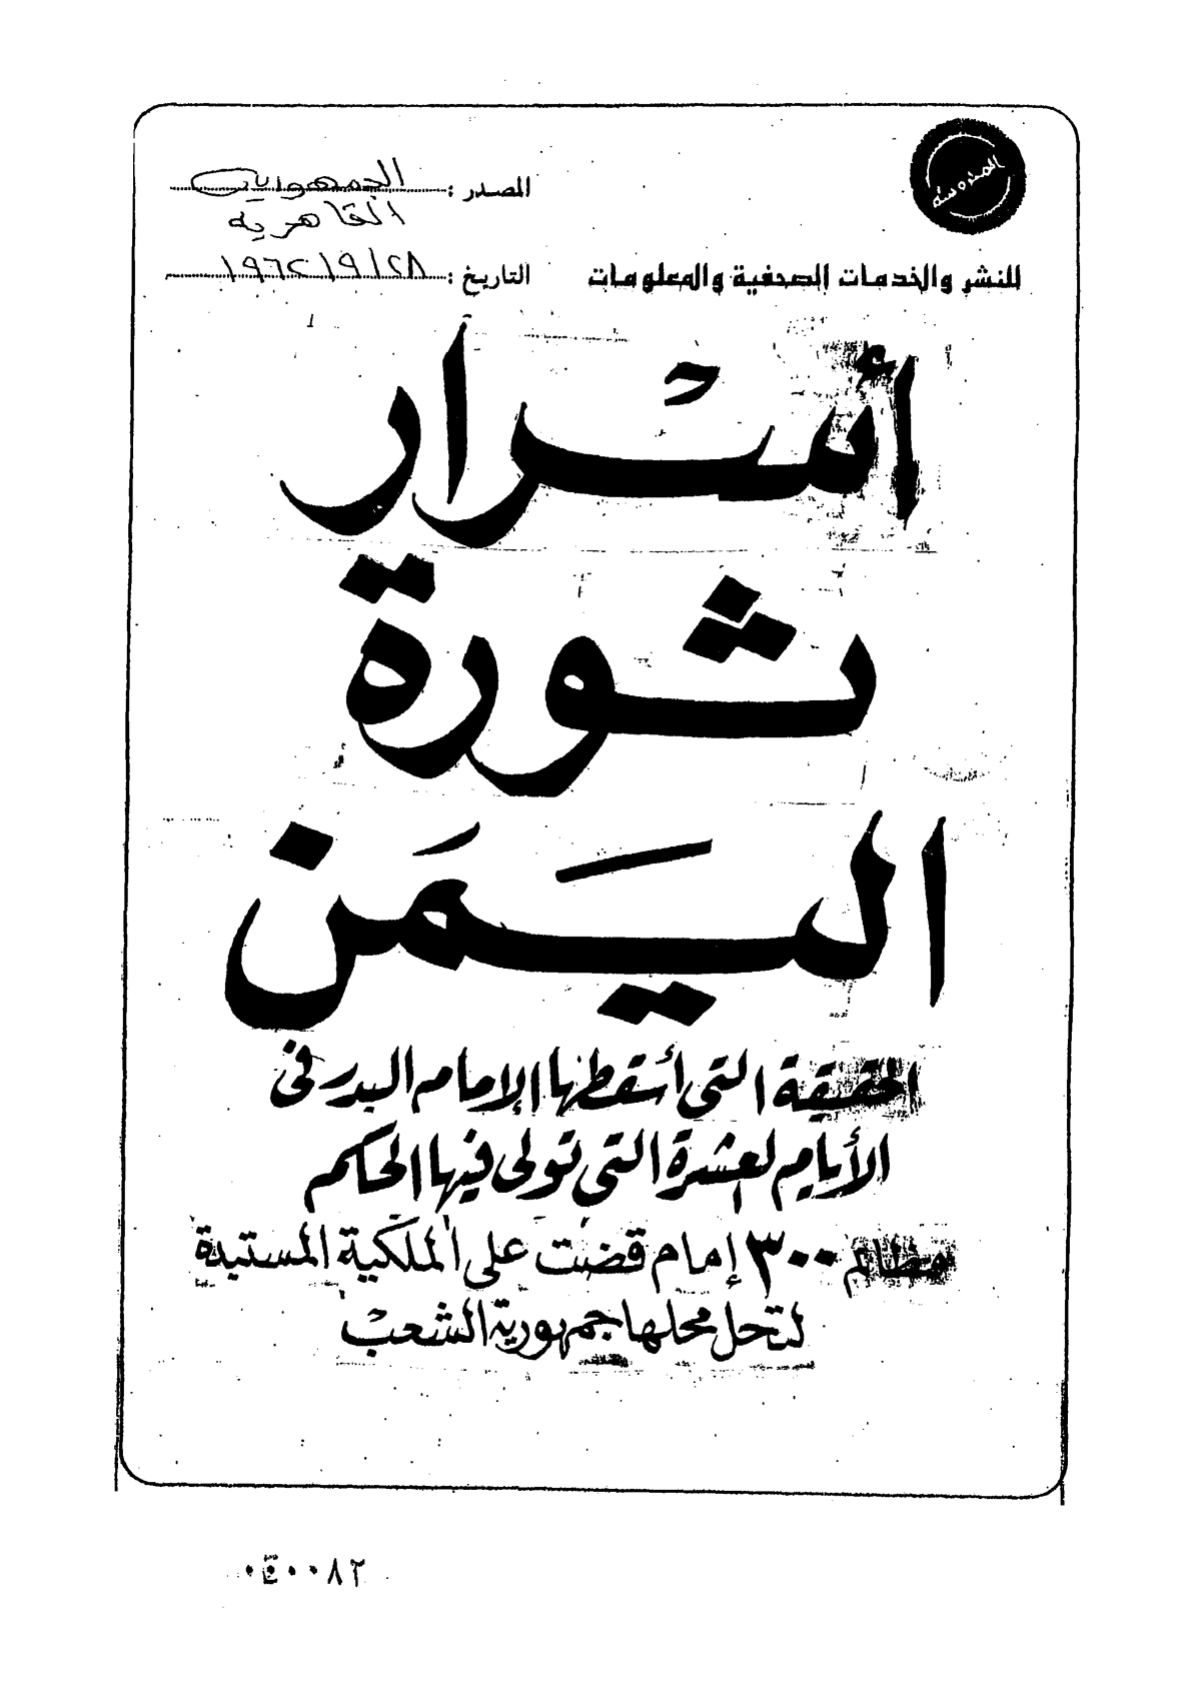 المحروسة
المصدر : الجمهورية
القاهرية
للنشر والخدمات الصحفية والمعلومات
التاريخ : ٢٨/٩/١٩٦٢
أسرار
ثورة
اليمن
الحقيقة التى أسقطها الإمام البدر فى
الأيام العشرة التى تولى فيها الحكم
مظالم ٣٠٠ إمام قضت على الملكية المستبدة
لتحل محلها جمهورية الشعب